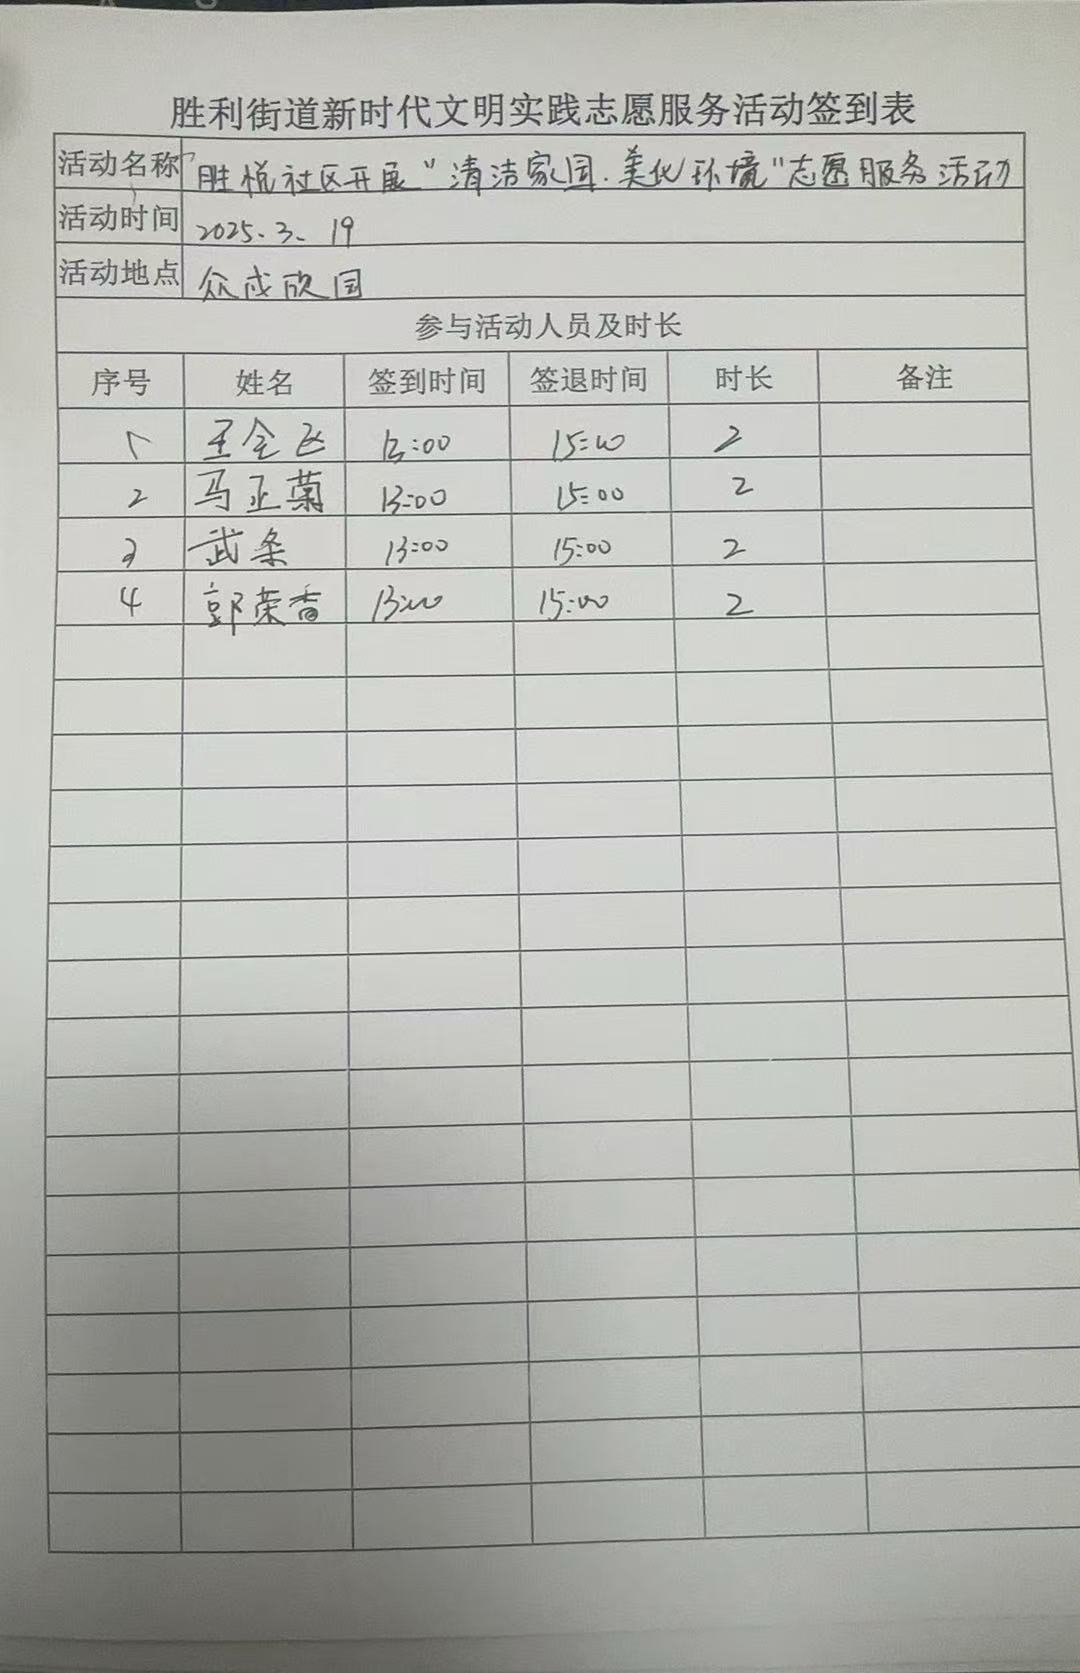 胜利街道新时代文明实践志愿服务活动签到表
活动名称 胜悦社区开展"清洁家园.美化环境"志愿服务活动
活动时间 2025.3.19
活动地点 众成欣园
参与活动人员及时长
序号 姓名 签到时间 签退时间 时长 备注
1 王全飞 13:00 15:00 2
2 马正菊 13:00 15:00 2
3 武条 13:00 15:00 2
4 郭荣香 13:00 15:00 2